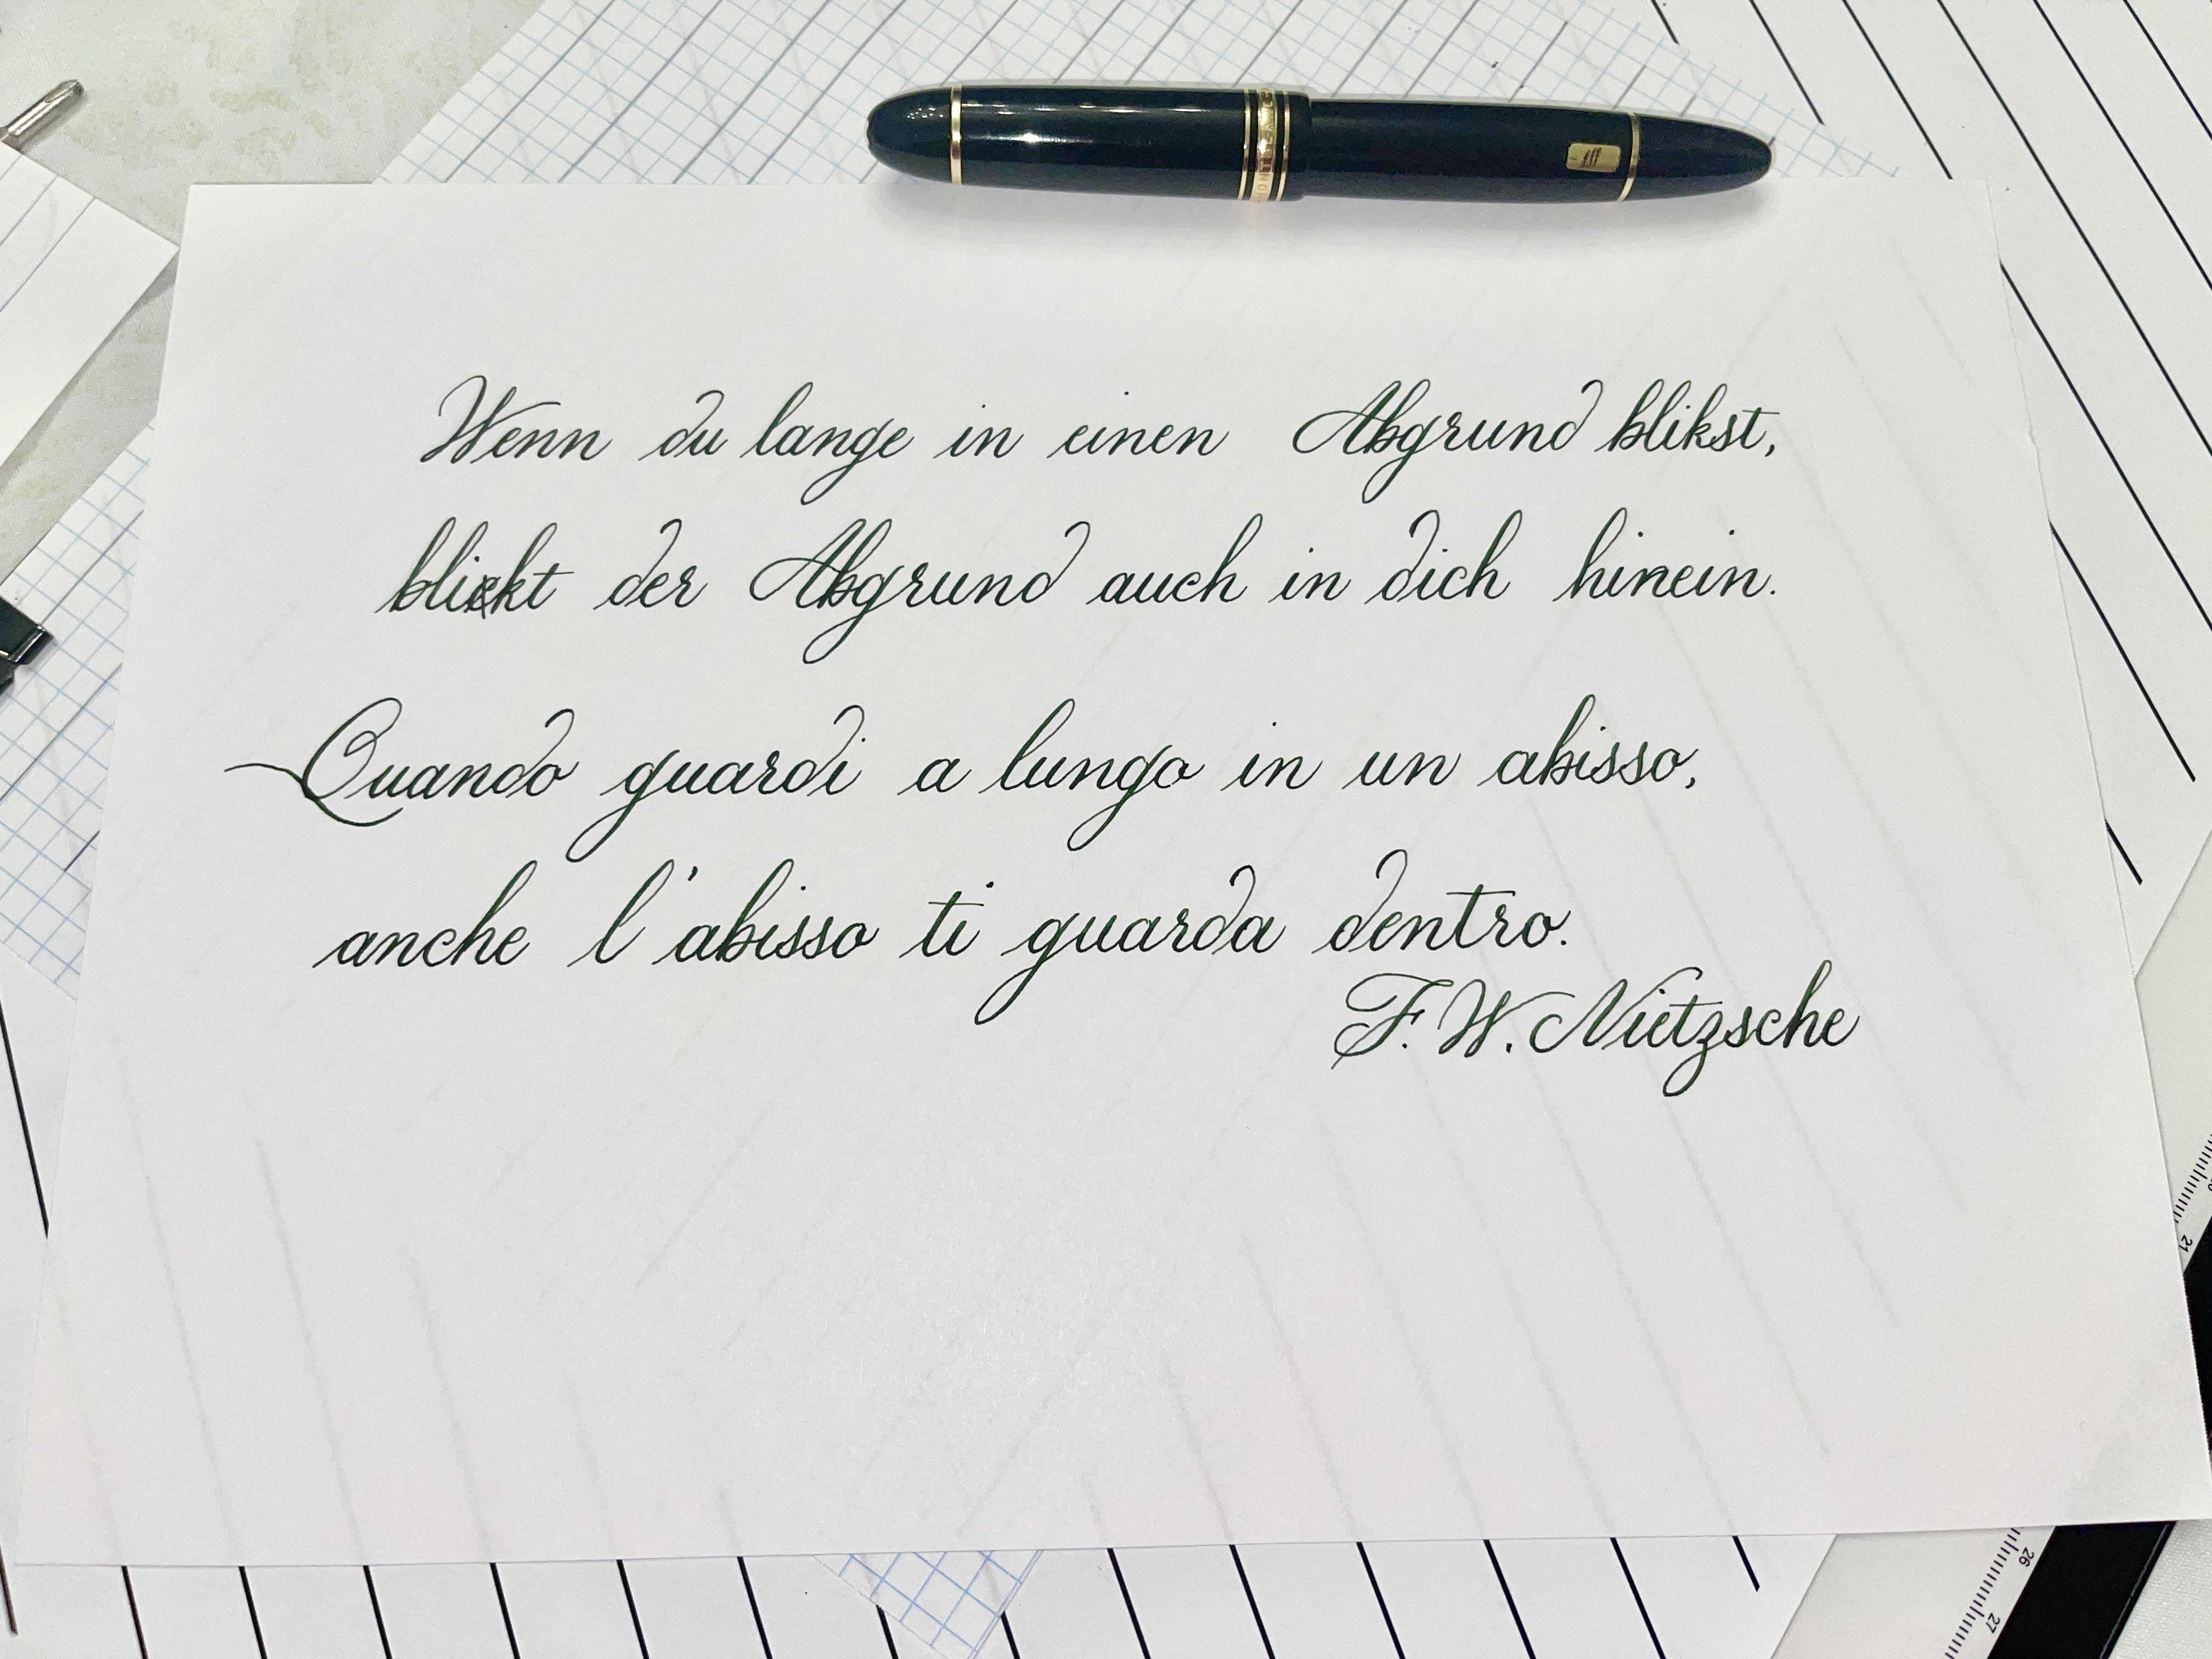 Wenn du lange in einen Abgrund blikst,
blickt der Abgrund auch in dich hinein.
Quando guardi a lungo in un abisso,
anche l'abisso ti guarda dentro.
F. W. Nietzsche
21
26
27